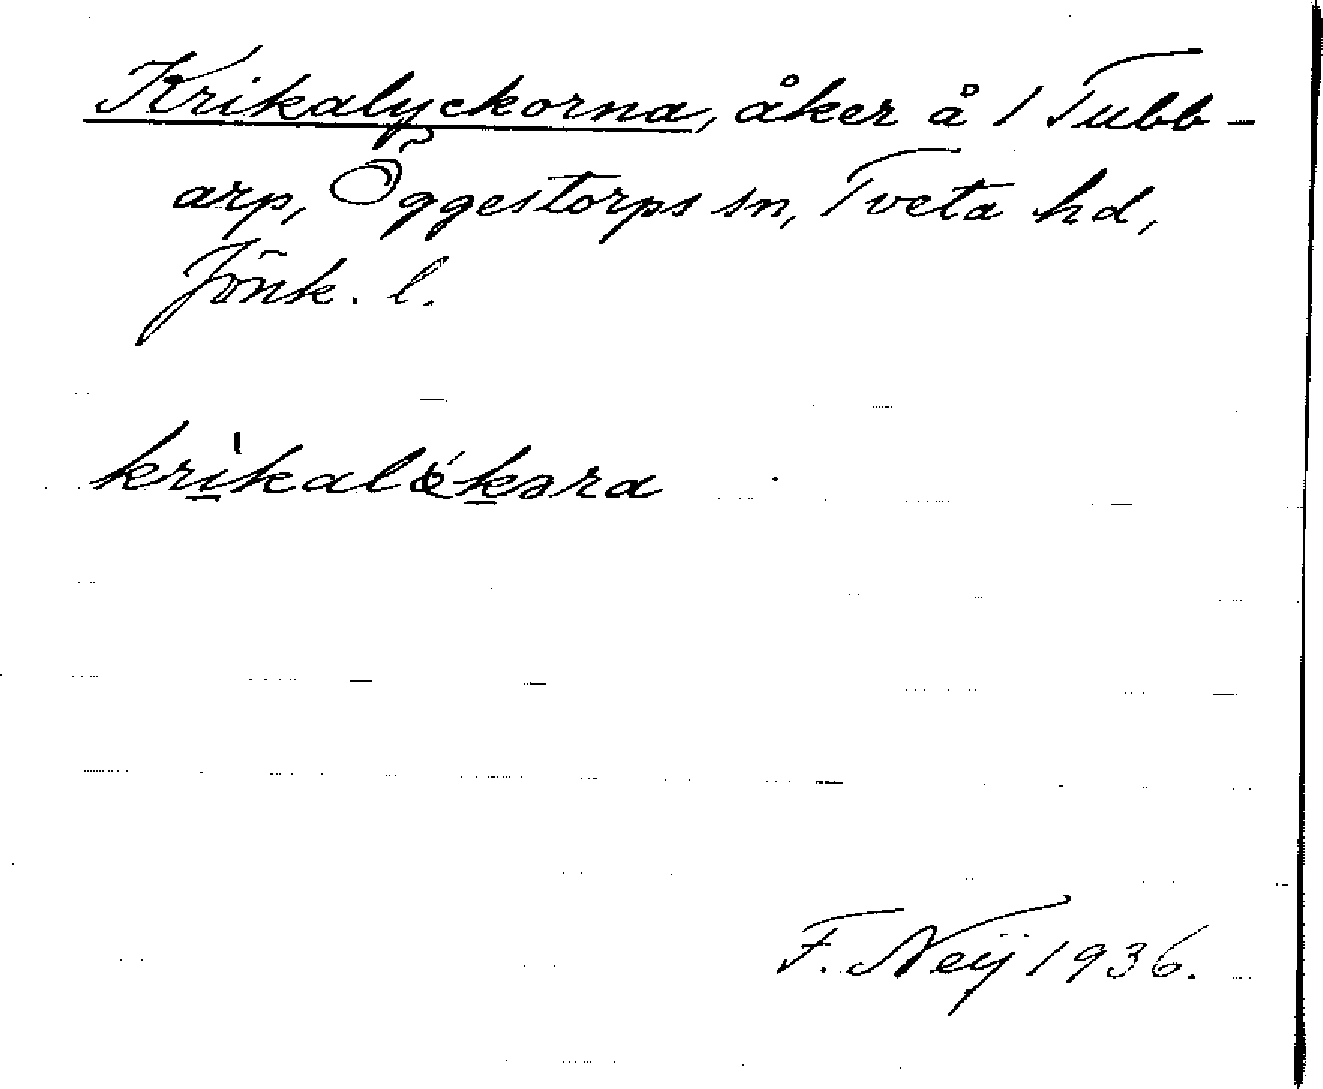 Krikalyckorna, åker å 1 Tubb-
arp, Öggestorps sn, Tveta hd,
Jönk. l.
F. Neij 1936.